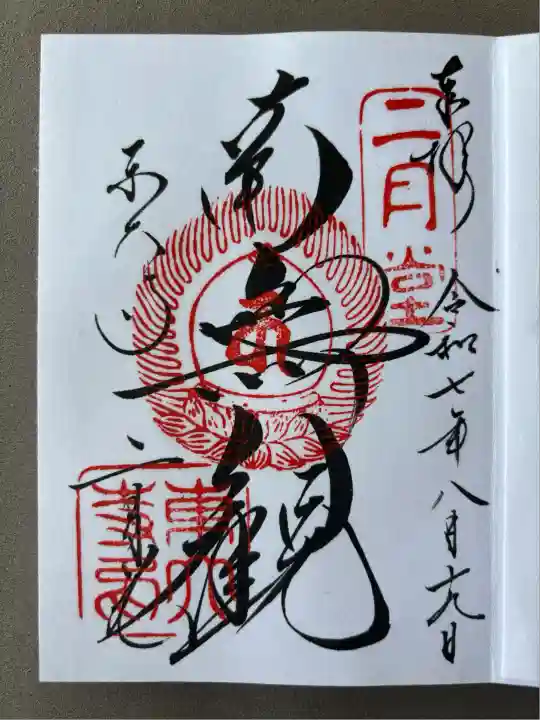 奉拝 令和七年八月十九日
二月堂
南無観
東大寺
二月堂